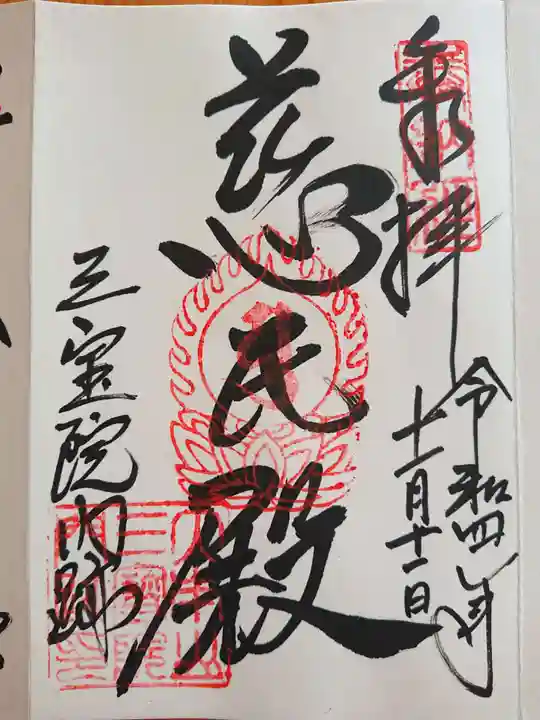 奉拝
令和四年
十一月十一日
慈氏殿
三宝院門跡
三寶院